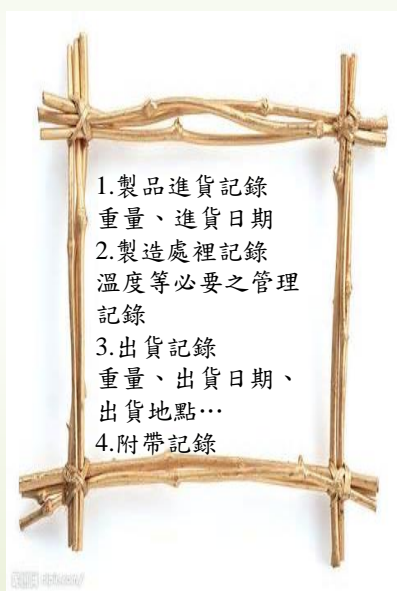 1.製品進貨記錄
重量、進貨日期
2.製造處裡記錄
溫度等必要之管理
記錄
3.出貨記錄
重量、出貨日期、
出貨地點…
4.附帶記錄